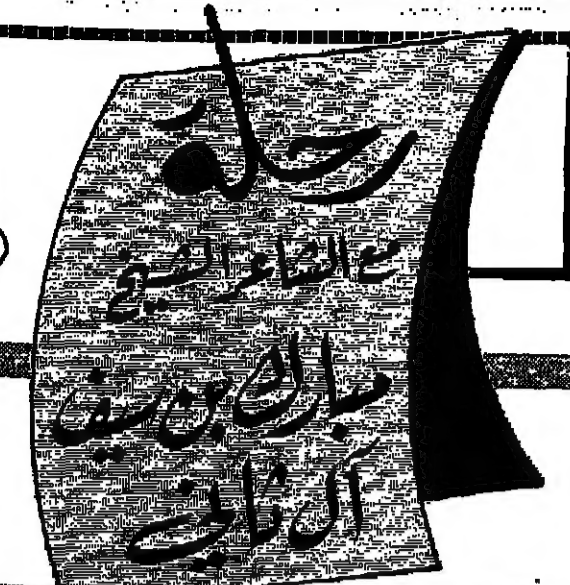 رحلة
مع الشاعر الشيخ
مبارك بن سيف
آل ثاني